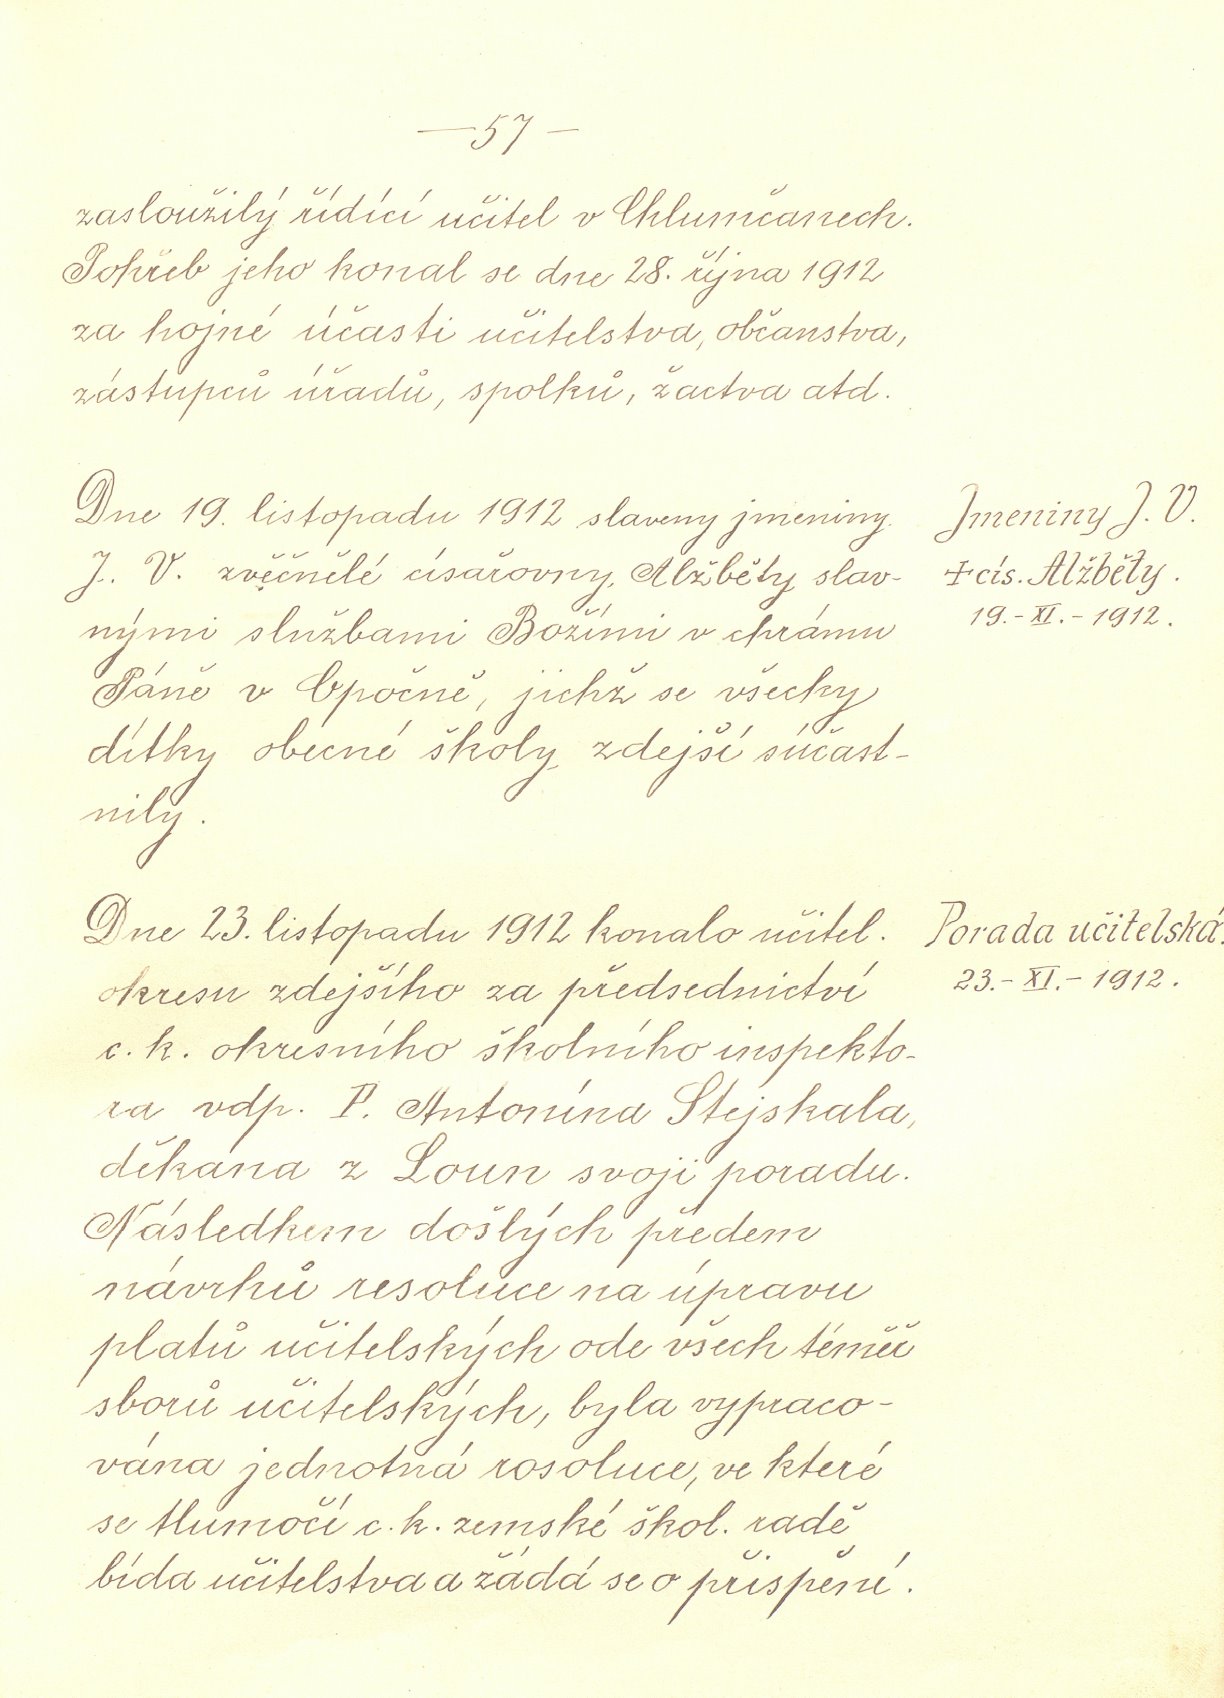 — 57 —
zasloužilý řídící učitel v Chlumčanech.
Pohřeb jeho konal se dne 28. října 1912
za hojné účasti učitelstva, občanstva,
zástupců úřadů, spolků, žactva atd.
Dne 19. listopadu 1912 slaveny jmeniny
J. V. zvěčnělé císařovny Alžběty slav-
nými službami Božími v chrámu
Páně v Opočně, jichž se všecky
dítky obecné školy zdejší súčast-
nily.
Jmeniny J. V.
+ cís. Alžběty.
19.-XI.-1912.
Dne 23. listopadu 1912 konalo učitel.
okresu zdejšího za předsednictví
c. k. okresního školního inspekto-
ra vdp. P. Antonína Stejskala,
děkana z Loun svoji poradu.
Následkem došlých předem
návrhů resoluce na úpravu
platů učitelských ode všech téměř
sborů učitelských, byla vypraco-
vána jednotná rosoluce, ve které
se tlumočí c. k. zemské škol. radě
bída učitelstva a žádá se o přispění.
Porada učitelská.
23.-XI.-1912.